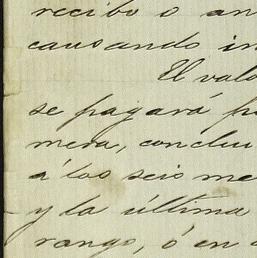 recibo o an
causando in
El valo
se pagará p
mera, conclu
á los seis me
y la última
rango, ó en